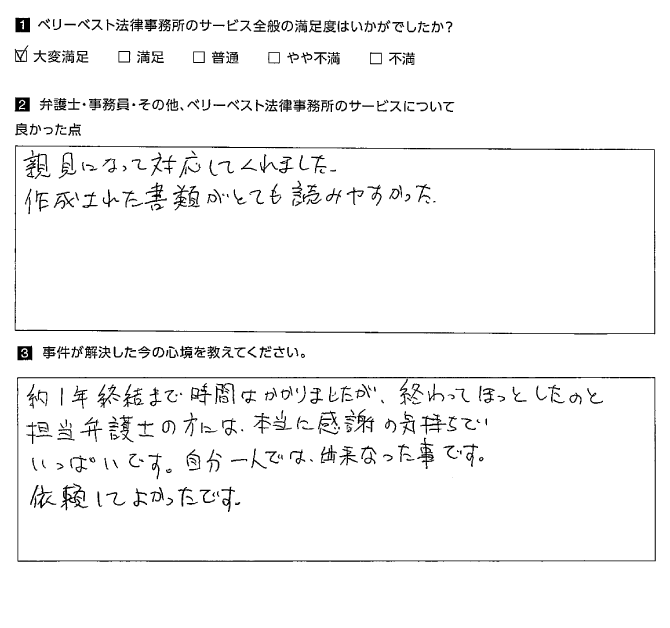 1 ベリーベスト法律事務所のサービス全般の満足度はいかがでしたか?
☑ 大変満足 □ 満足 □ 普通 □ やや不満 □ 不満
2 弁護士・事務員・その他、ベリーベスト法律事務所のサービスについて
良かった点
親見になって対応してくれました。
作成された書類がとても読みやすかった。
3 事件が解決した今の心境を教えてください。
約1年終結まで時間はかかりましたが、終わってほっとしたのと
担当弁護士の方には、本当に感謝の気持ちで
いっぱいです。自分一人では、出来なった事です。
依頼してよかったです。